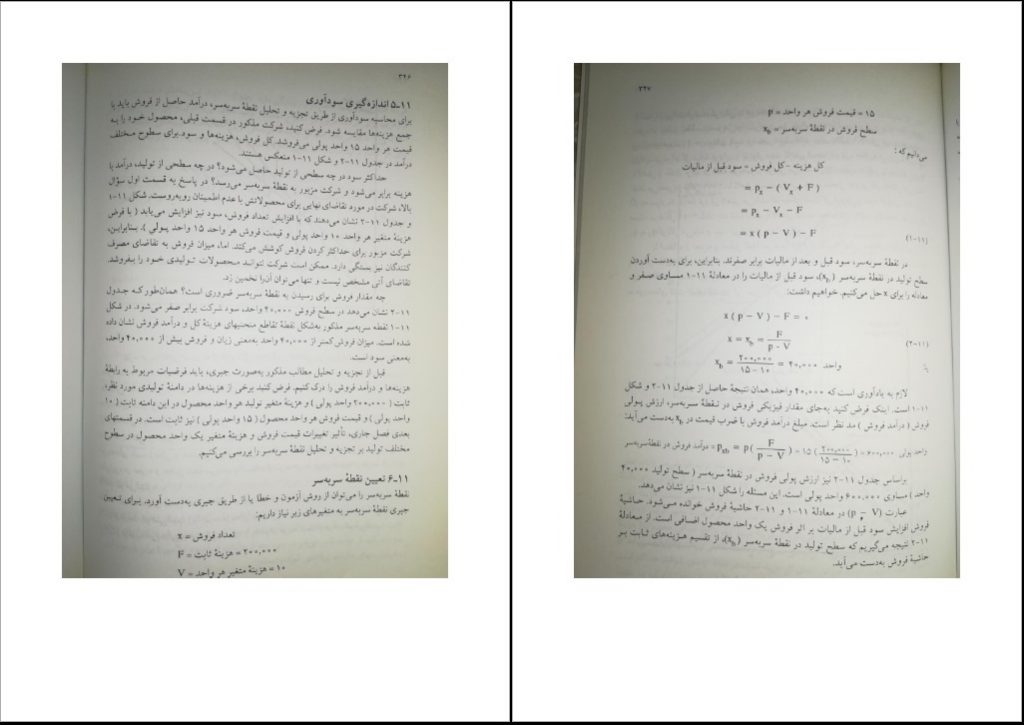 ۳۲۶
۱۱-۵ اندازه‌گیری سودآوری
برای محاسبه سودآوری از طریق تجزیه و تحلیل نقطهٔ سربه‌سر، درآمد حاصل از فروش باید با
جمع هزینه‌ها مقایسه شود. فرض کنید، شرکت مذکور در قسمت قبلی، محصول خود را به
قیمت هر واحد ۱۵ واحد پولی می‌فروشد. کل فروش، هزینه‌ها و سود برای سطوح مختلف
درآمد در جدول ۱۱-۲ و شکل ۱۱-۱ منعکس هستند.
حداکثر سود در چه سطحی از تولید حاصل می‌شود؟ در چه سطحی از تولید، درآمد با
هزینه برابر می‌شود و شرکت مزبور به نقطهٔ سربه‌سر می‌رسد؟ در پاسخ به قسمت اول سؤال
بالا، شرکت در مورد تقاضای نهایی برای محصولاتش با عدم اطمینان روبه‌روست. شکل ۱۱-۱
و جدول ۱۱-۲ نشان می‌دهند که با افزایش تعداد فروش، سود نیز افزایش می‌یابد ( با فرض
هزینهٔ متغیر هر واحد ۱۰ واحد پولی و قیمت فروش هر واحد ۱۵ واحد پولی ). بنابراین،
شرکت مزبور برای حداکثر کردن فروش کوشش می‌کند. اما، میزان فروش به تقاضای مصرف
کنندگان نیز بستگی دارد. ممکن است شرکت نتواند محصولات تولیدی خود را بفروشد.
تقاضای آتی مشخص نیست و تنها می‌توان آن‌را تخمین زد.
چه مقدار فروش برای رسیدن به نقطهٔ سربه‌سر ضروری است؟ همان‌طور که جدول
۱۱-۲ نشان می‌دهد در سطح فروش ۴۰،۰۰۰ واحد، سود شرکت برابر صفر می‌شود. در شکل
۱۱-۱ نقطه سربه‌سر مذکور به‌شکل نقطهٔ تقاطع منحنیهای هزینهٔ کل و درآمد فروش نشان داده
شده است. میزان فروش کمتر از ۴۰،۰۰۰ واحد به‌معنی زیان و فروش بیش از ۴۰،۰۰۰ واحد،
به‌معنی سود است.
قبل از تجزیه و تحلیل مطالب مذکور به‌صورت جبری، باید فرضیات مربوط به رابطهٔ
هزینه‌ها و درآمد فروش را درک کنیم. فرض کنید برخی از هزینه‌ها در دامنهٔ تولیدی مورد نظر،
ثابت ( ۲۰۰،۰۰۰ واحد پولی ) و هزینهٔ متغیر تولید هر واحد محصول در این دامنه ثابت ( ۱۰
واحد پولی ) و قیمت فروش هر واحد محصول ( ۱۵ واحد پولی ) نیز ثابت است. در قسمتهای
بعدی فصل جاری، تأثیر تغییرات قیمت فروش و هزینهٔ متغیر یک واحد محصول در سطوح
مختلف تولید بر تجزیه و تحلیل نقطهٔ سربه‌سر را بررسی می‌کنیم.
۱۱-۶ تعیین نقطهٔ سربه‌سر
نقطه سربه‌سر را می‌توان از روش آزمون و خطا یا از طریق جبری به‌دست آورد. برای تعیین
جبری نقطهٔ سربه‌سر به متغیرهای زیر نیاز داریم:
تعداد فروش = x
۲۰۰،۰۰۰ = هزینهٔ ثابت = F
۱۰ = هزینهٔ متغیر هر واحد = V
۳۲۷
۱۵ = قیمت فروش هر واحد = p
سطح فروش در نقطهٔ سربه‌سر = x_b
می‌دانیم که :
کل هزینه - کل فروش = سود قبل از مالیات
= p_x − ( V_x + F )
= p_x − V_x − F
= x ( p − V ) − F
(۱۱-۱)
در نقطهٔ سربه‌سر، سود قبل و بعد از مالیات برابر صفرند. بنابراین، برای به‌دست آوردن
سطح تولید در نقطهٔ سربه‌سر (x_b)، سود قبل از مالیات را در معادلهٔ ۱۱-۱ مساوی صفر و
معادله را برای x حل می‌کنیم. خواهیم داشت:
x ( p − V ) − F = ۰
x = x_b = F / (p - V)
(۱۱-۲)
x_b = ۲۰۰،۰۰۰ / (۱۵ − ۱۰) = ۴۰،۰۰۰ واحد
لازم به یادآوری است که ۴۰،۰۰۰ واحد، همان نتیجهٔ حاصل از جدول ۱۱-۲ و شکل
۱۱-۱ است. اینک فرض کنید به‌جای مقدار فیزیکی فروش در نقطهٔ سربه‌سر، ارزش پولی
فروش ( درآمد فروش ) مد نظر است. مبلغ درآمد فروش با ضرب قیمت در x_b به‌دست می‌آید:
درآمد فروش در نقطهٔ سربه‌سر = p_xb = p( F / (p − V) ) = ۱۵ ( ۲۰۰،۰۰۰ / (۱۵ − ۱۰) ) = ۶۰۰،۰۰۰ واحد پولی
براساس جدول ۱۱-۲ نیز ارزش پولی فروش در نقطهٔ سربه‌سر ( سطح تولید ۴۰،۰۰۰
واحد ) مساوی ۶۰۰،۰۰۰ واحد پولی است. این مسئله را شکل ۱۱-۱ نیز نشان می‌دهد.
عبارت (p − V) در معادلهٔ ۱۱-۱ و ۱۱-۲ حاشیهٔ فروش خوانده می‌شود. حاشیهٔ
فروش افزایش سود قبل از مالیات بر اثر فروش یک واحد محصول اضافی است. از معادلهٔ
۱۱-۲ نتیجه می‌گیریم که سطح تولید در نقطهٔ سربه‌سر (x_b)، از تقسیم هزینه‌های ثابت بر
حاشیهٔ فروش به‌دست می‌آید.